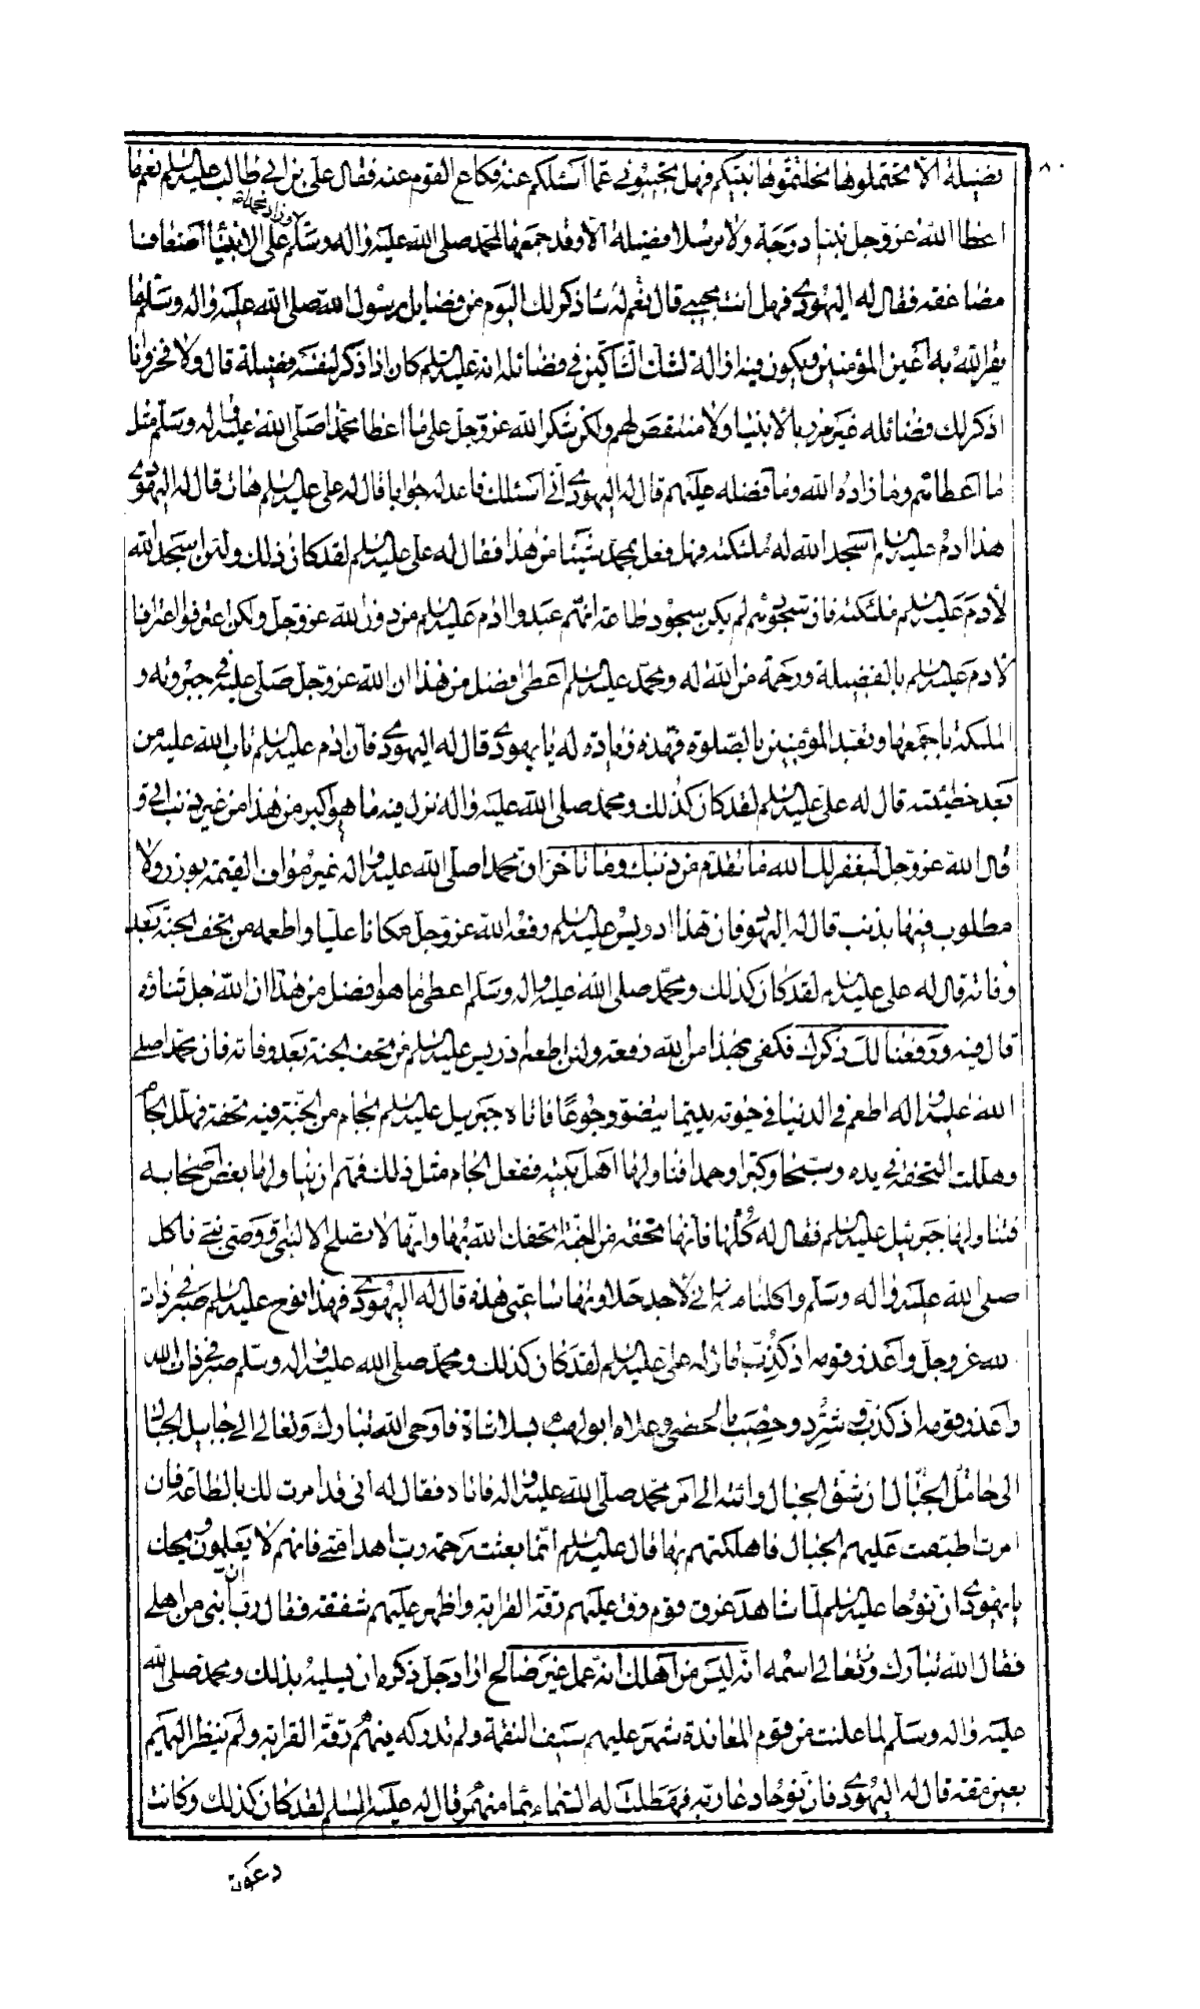 فضيلة الا تحتملوها نحلتموها نبيكم فهل تجيبوني عما اسئلكم عنه فكاع القوم عنه فقال علي بن ابي طالب عليه السلم نعم ما
اعطا الله عز وجل نبيا درجة ولا مرسلا فضيلة الا وقد جمعها لمحمد صلى الله عليه واله وسلم وزاد محمدا على الانبياء اضعافا
مضاعفة فقال له اليهودي فهل انت مجيبي قال نعم له ساذكر لك اليوم من فضايل رسول الله صلى الله عليه واله وسلم ما
يقر الله به اعين المؤمنين ويكون فيه ازالة لشك الشاكين في فضائله انه عليه السلم كان اذا ذكر لنفسه فضيلة قال ولا فخر وانا
اذكر لك فضائله غير مزر بالانبيا ولا متنقص لهم ولكن شكرا لله عز وجل على ما اعطا محمدا صلى الله عليه واله وسلم مثل
ما اعطاهم وما زاده الله وما فضله عليهم قال له اليهودي اني اسئلك فاعد له جوابا قال له علي عليه السلم هات قال له اليهودي
هذا ادم عليه السلم اسجد الله له ملئكته فهل فعل بمحمد شيئا من هذا فقال له علي عليه السلم لقد كان ذلك ولئن اسجد الله
لادم عليه السلم ملئكته فان سجودهم لم يكن سجود طاعة انهم عبدوا ادم عليه السلم من دون الله عز وجل ولكن اعترفوا اعترافا
لادم عليه السلم بالفضيلة ورحمة من الله له ومحمد عليه السلم اعطي افضل من هذا ان الله عز وجل صلى عليه في جبروته و
الملئكة باجمعها وتعبد المؤمنين بالصلوة فهذه زيادة له يا يهودي قال له اليهودي فان ادم عليه السلم تاب الله عليه من
بعد خطيئته قال له علي عليه السلم لقد كان كذلك ومحمد صلى الله عليه واله نزل فيه ما هو اكبر من هذا من غير ذنب اتى و
قال الله عز وجل ليغفر لك الله ما تقدم من ذنبك وما تاخر ان محمدا صلى الله عليه واله غير مواف القيمة بوزر ولا
مطلوب فيها بذنب قال له اليهودي فان هذا ادريس عليه السلم رفعه الله عز وجل مكانا عليا واطعمه من تحف الجنة بعد
وفاته قال له علي عليه السلم لقد كان كذلك ومحمد صلى الله عليه واله وسلم اعطي ما هو افضل من هذا ان الله جل ثناؤه
قال فيه ورفعنا لك ذكرك فكفى بهذا من الله رفعة ولئن اطعم ادريس عليه السلم من تحف الجنة بعد وفاته فان محمدا صلى
الله عليه واله اطعم في الدنيا في حيوته بينما يتضور جوعا فاتاه جبريل عليه السلم بجام من الجنة فيه تحفة فهلل الجام
وهللت التحفة في يده وسبحا وكبرا وحمدا فناولها اهل بيته ففعل الجام مثل ذلك فهم ان يناولها بعض اصحابه
فتناولها جبرئيل عليه السلم فقال له كلها فانها تحفة من الجنة اتحفك الله بها وانها لا تصلح الا لنبي او وصي نبي فاكل
صلى الله عليه واله وسلم واكلنا معه واني لاجد حلاوتها ساعتي هذه قال له اليهودي فهذا نوح عليه السلم صبر في ذات
الله عز وجل واعذر قومه اذ كذب قال له علي عليه السلم لقد كان كذلك ومحمد صلى الله عليه واله وسلم صبر في ذات الله
واعذر قومه اذ كذب وشرد وحصب بالحصى وعلاه ابو لهب بسلا شاة فاوحى الله تبارك وتعالى الى جابيل الجبال
الى حامل الجبال ان شق الجبال وانته الى امر محمد صلى الله عليه واله فاتاه فقال له اني قد امرت لك بالطاعة فان
امرت اطبقت عليهم الجبال فاهلكتهم بها قال عليه السلم انما بعثت رحمة رب اهد امتي فانهم لا يعلمون ويحك
يا يهودي ان نوحا عليه السلم لما شاهد غرق قومه رق عليهم رقة القرابة واظهر عليهم شفقة فقال رب ان ابني من اهلي
فقال الله تبارك وتعالى اسمه انه ليس من اهلك انه عمل غير صالح اراد جل ذكره ان يسليه بذلك ومحمد صلى الله
عليه واله وسلم لما علنت من قومه المعاندة شهر عليهم سيف النقمة ولم تدركه فيهم رقة القرابة ولم ينظر اليهم
بعين مقة قال له اليهودي فان نوحا دعا ربه فهطلت له السماء بماء منهمر قال له عليه السلم لقد كان كذلك وكانت
دعوة